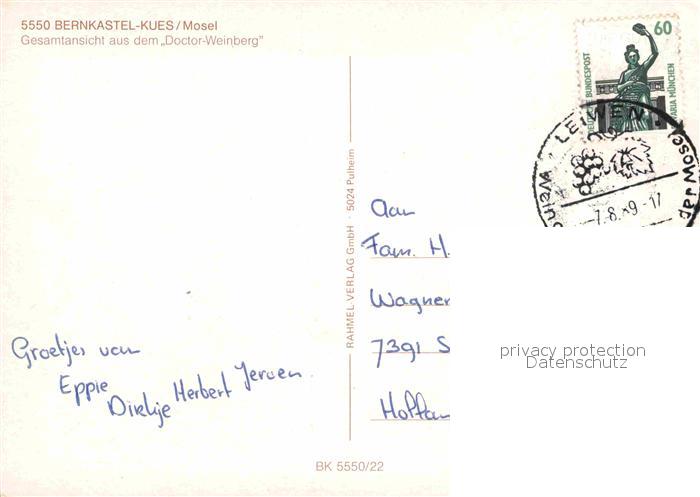 5550 BERNKASTEL-KUES/Mosel
Gesamtansicht aus dem „Doctor-Weinberg"
60
DEUTSCHE BUNDESPOST
BAVARIA MÜNCHEN
LEIWEN
Mosel
7.8.89-17
RAHMEL-VERLAG GmbH · 5024 Pulheim
Aan
Fam. H.
Wagner
7391 S
Hollan
privacy protection
Datenschutz
Groetjes van
Eppie
Dirkje Herbert Jeroen.
BK 5550/22